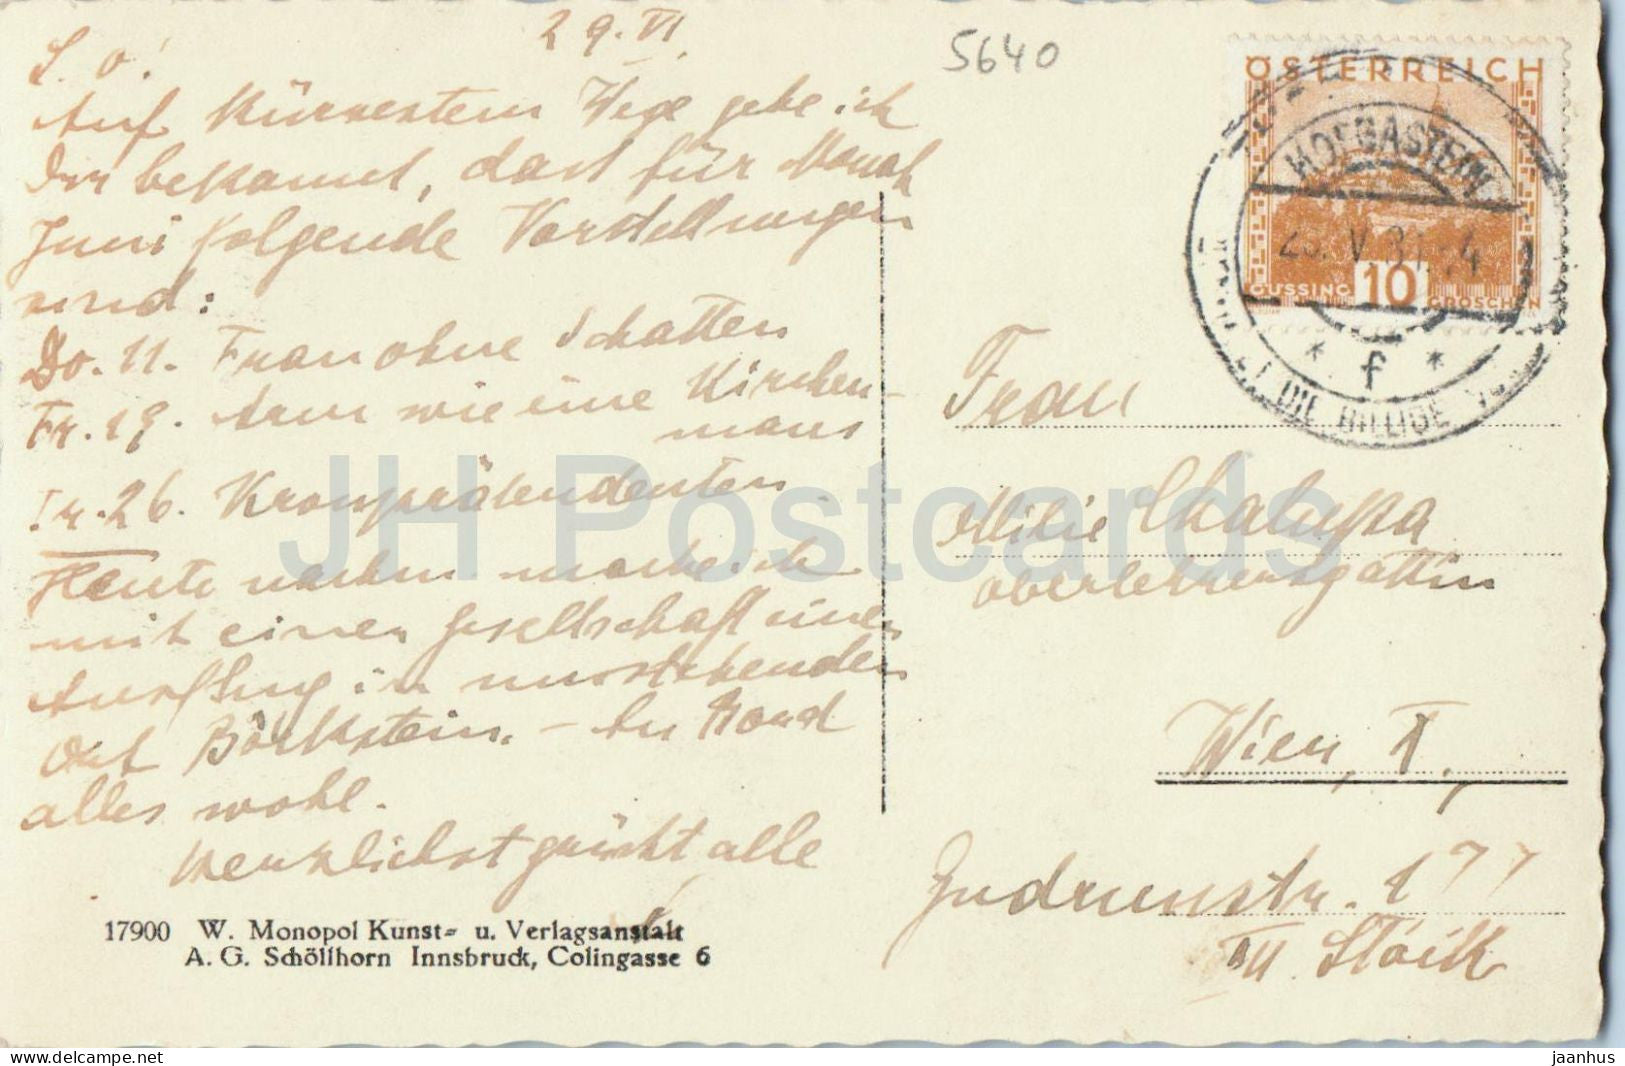 29. VI.
5640
L. O!
Auf kürzestem Wege gebe ich
Dir bekannt, dass für Monat
Juni folgende Vorstellungen
sind:
Do. 11. Frau ohne Schatten
Fr. 19. Arm wie eine Kirchen-
maus
Fr. 26. Kronprätendenten.
Heute machen mache ich
mit einer Gesellschaft einen
Ausflug in umstehenden
Ort Böckstein. – An Bord
alles wohl.
Herzlichst grüsst alle
17900 W. Monopol Kunst- u. Verlagsanstalt
A. G. Schöllhorn Innsbruck, Colingasse 6
ÖSTERREICH
GÜSSING 10 GROSCHEN
HOFGASTEIN
V. 31
* f *
DIE BILLIGE
Frau
Milli Chalupka
Oberlehrersgattin
Wien, X.,
Gudrunstr. 177
III. Stock
JH Postcards
delcampe.net
jaanhus